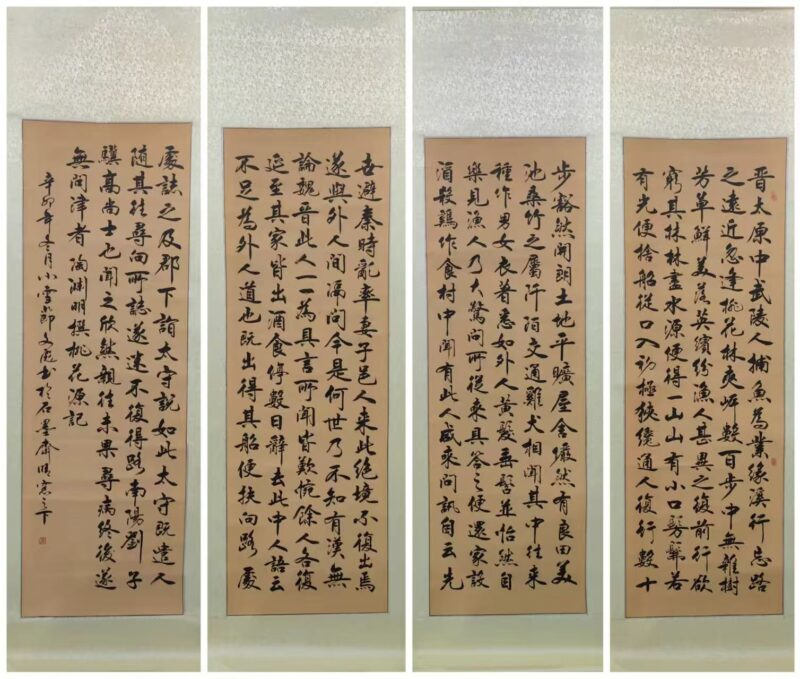 晋太原中武陵人捕魚為業緣溪行忘路
之遠近忽逢桃花林夾岸數百步中無雜樹
芳草鮮美落英繽紛漁人甚異之復前行欲
窮其林林盡水源便得一山山有小口髣髴若
有光便捨船從口入初極狹纔通人復行數十
步豁然開朗土地平曠屋舍儼然有良田美
池桑竹之屬阡陌交通雞犬相聞其中往来
種作男女衣着悉如外人黄髮垂髫並怡然自
樂見漁人乃大驚問所從来具答之便還家設
酒殺鷄作食村中聞有此人咸来問訊自云先
世避秦時亂率妻子邑人来此絶境不復出焉
遂與外人間隔問今是何世乃不知有漢無
論魏晋此人一一為具言所聞皆歎惋餘人各復
延至其家皆出酒食停數日辭去此中人語云
不足為外人道也既出得其船便扶向路處
處誌之及郡下詣太守説如此太守既遣人
隨其往尋向所誌遂迷不復得路南陽劉子
驥高尚士也聞之欣然親往未果尋病終後遂
無問津者陶淵明撰桃花源記
辛卯年冬月小雪節文書於石墨齋晴窗之下